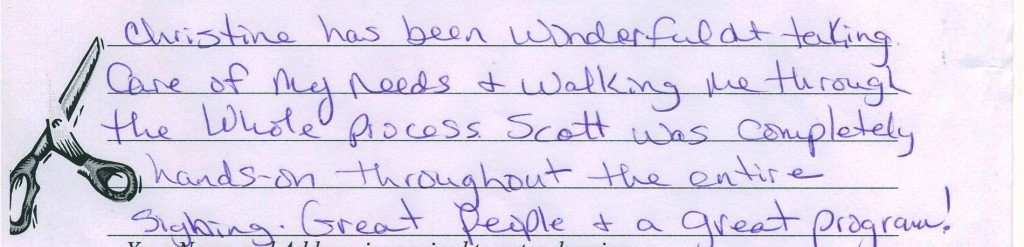 Christine has been wonderful at taking
Care of My Needs & walking me through
the whole process. Scott was completely
hands-on throughout the entire
Great People & a great program!